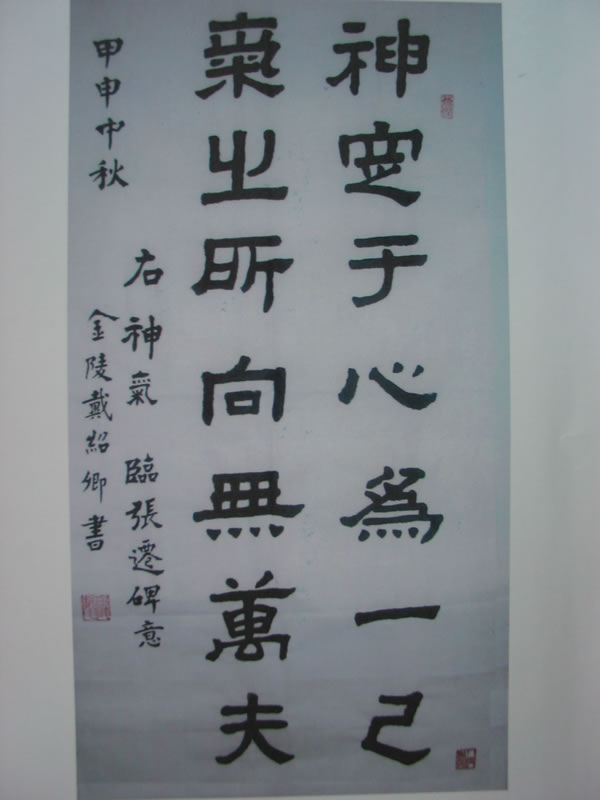 神定于心爲一己
氣之所向無萬夫
右神氣 臨張遷碑意
甲申中秋 金陵戴紹卿書